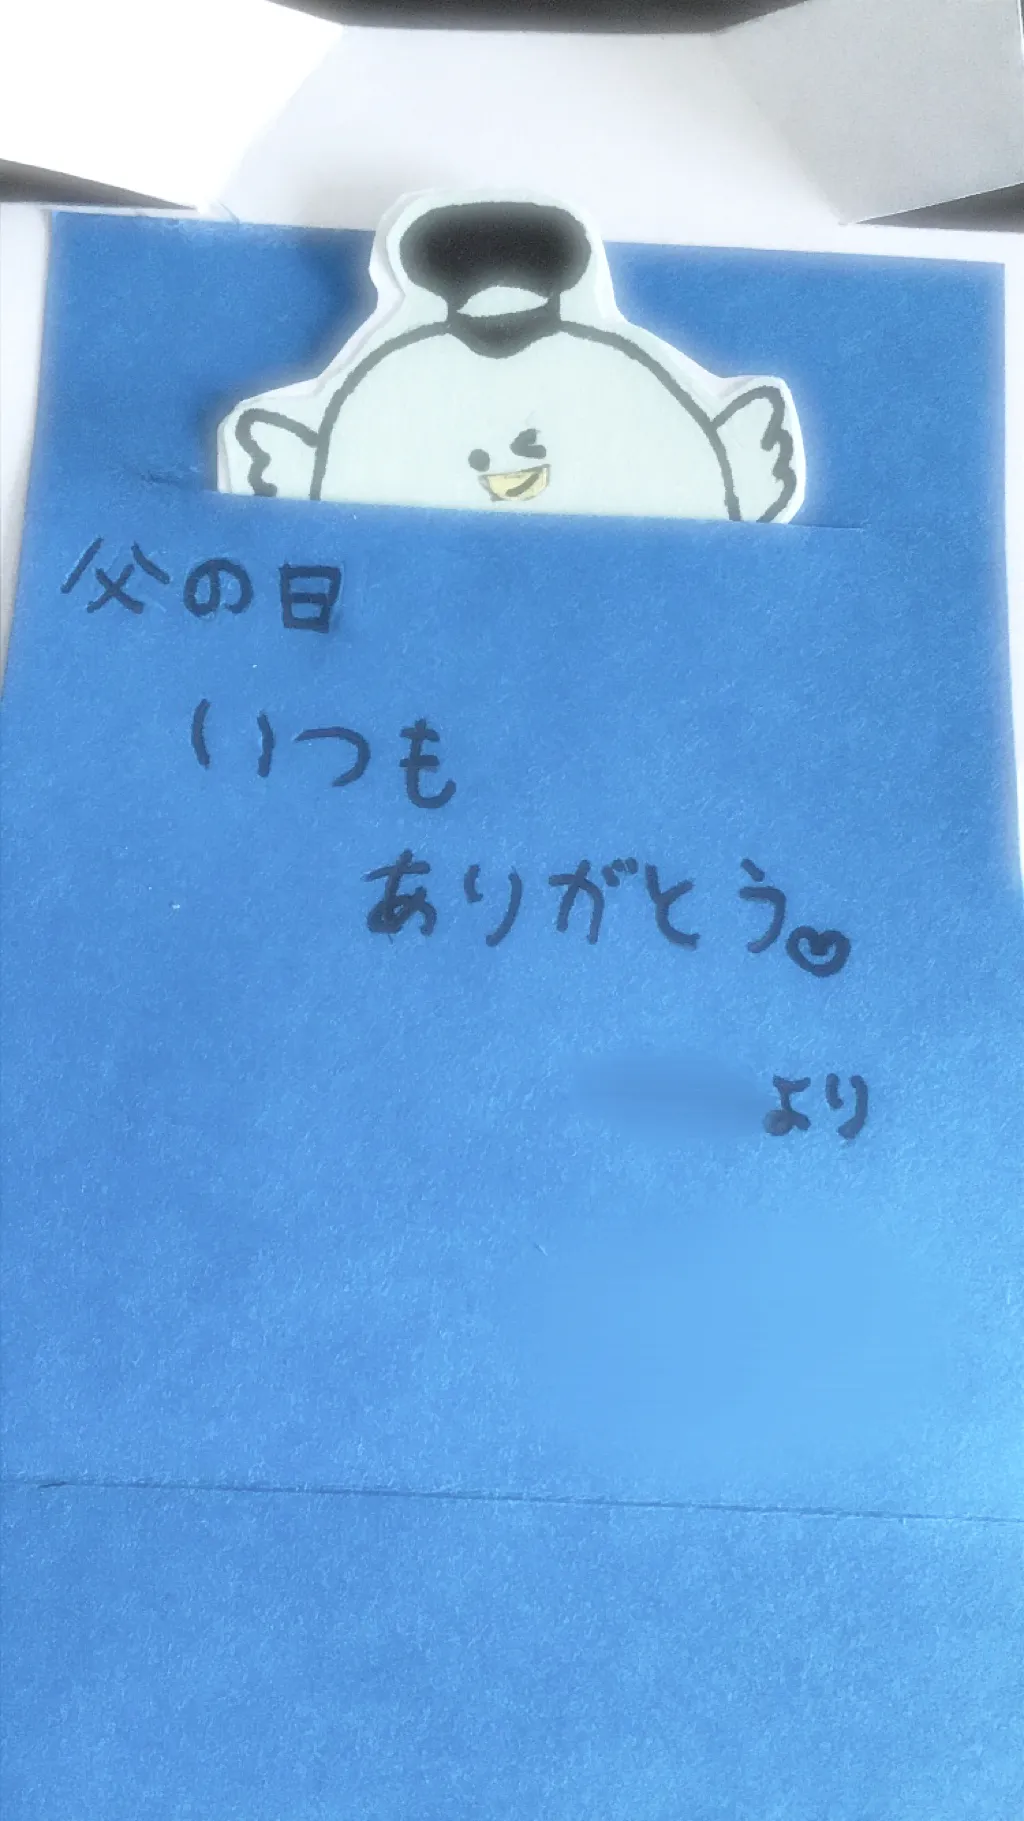 父の日
いつも
ありがとう♡
より